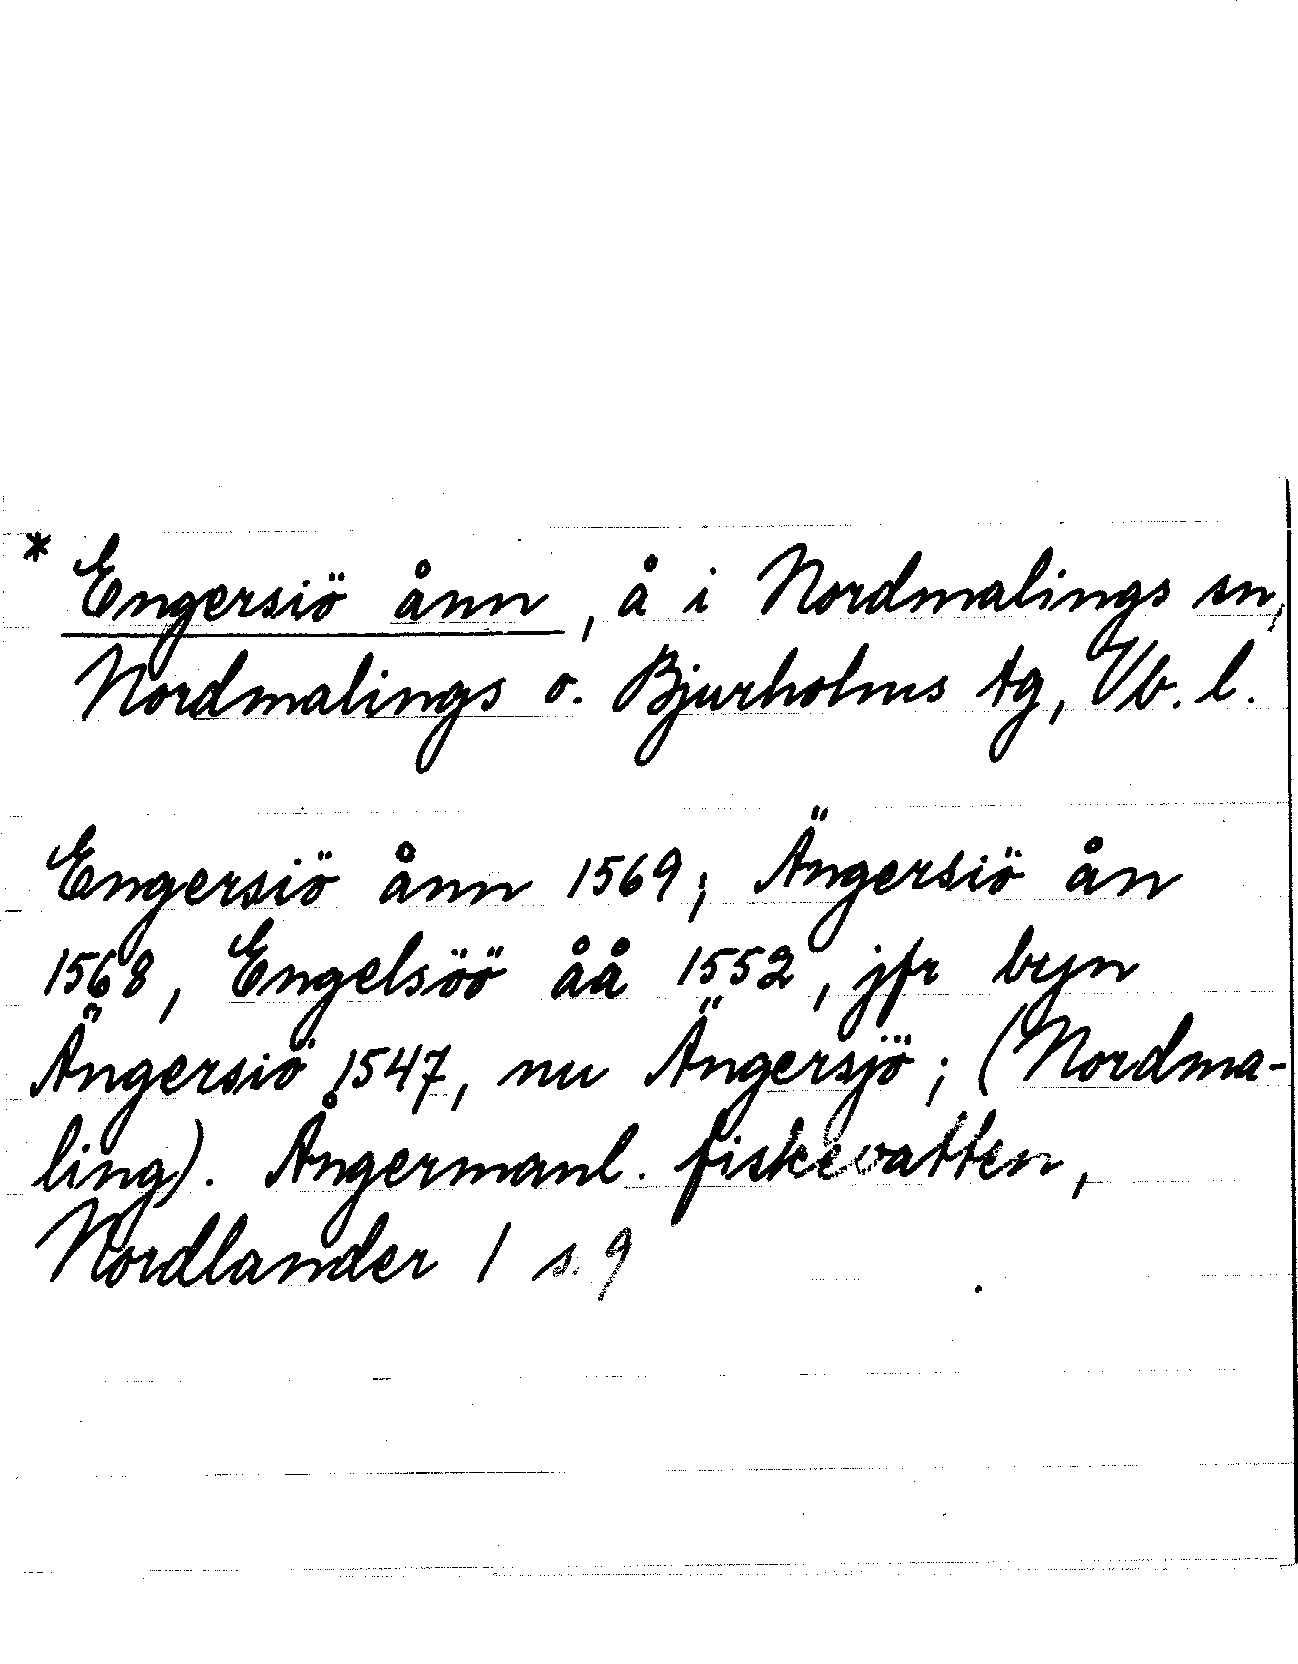 * Engersiö ånn, å i Nordmalings sn,
Nordmalings o. Bjurholms tg, Vb. l.
Engersiö ånn 1569; Ängersiö ån
1568, Engelsöö åå 1552, jfr byn
Ängersiö 1547, nu Ängersjö; (Nordma-
ling). Ångermanl. fiskevatten,
Nordlander 1 s. 9